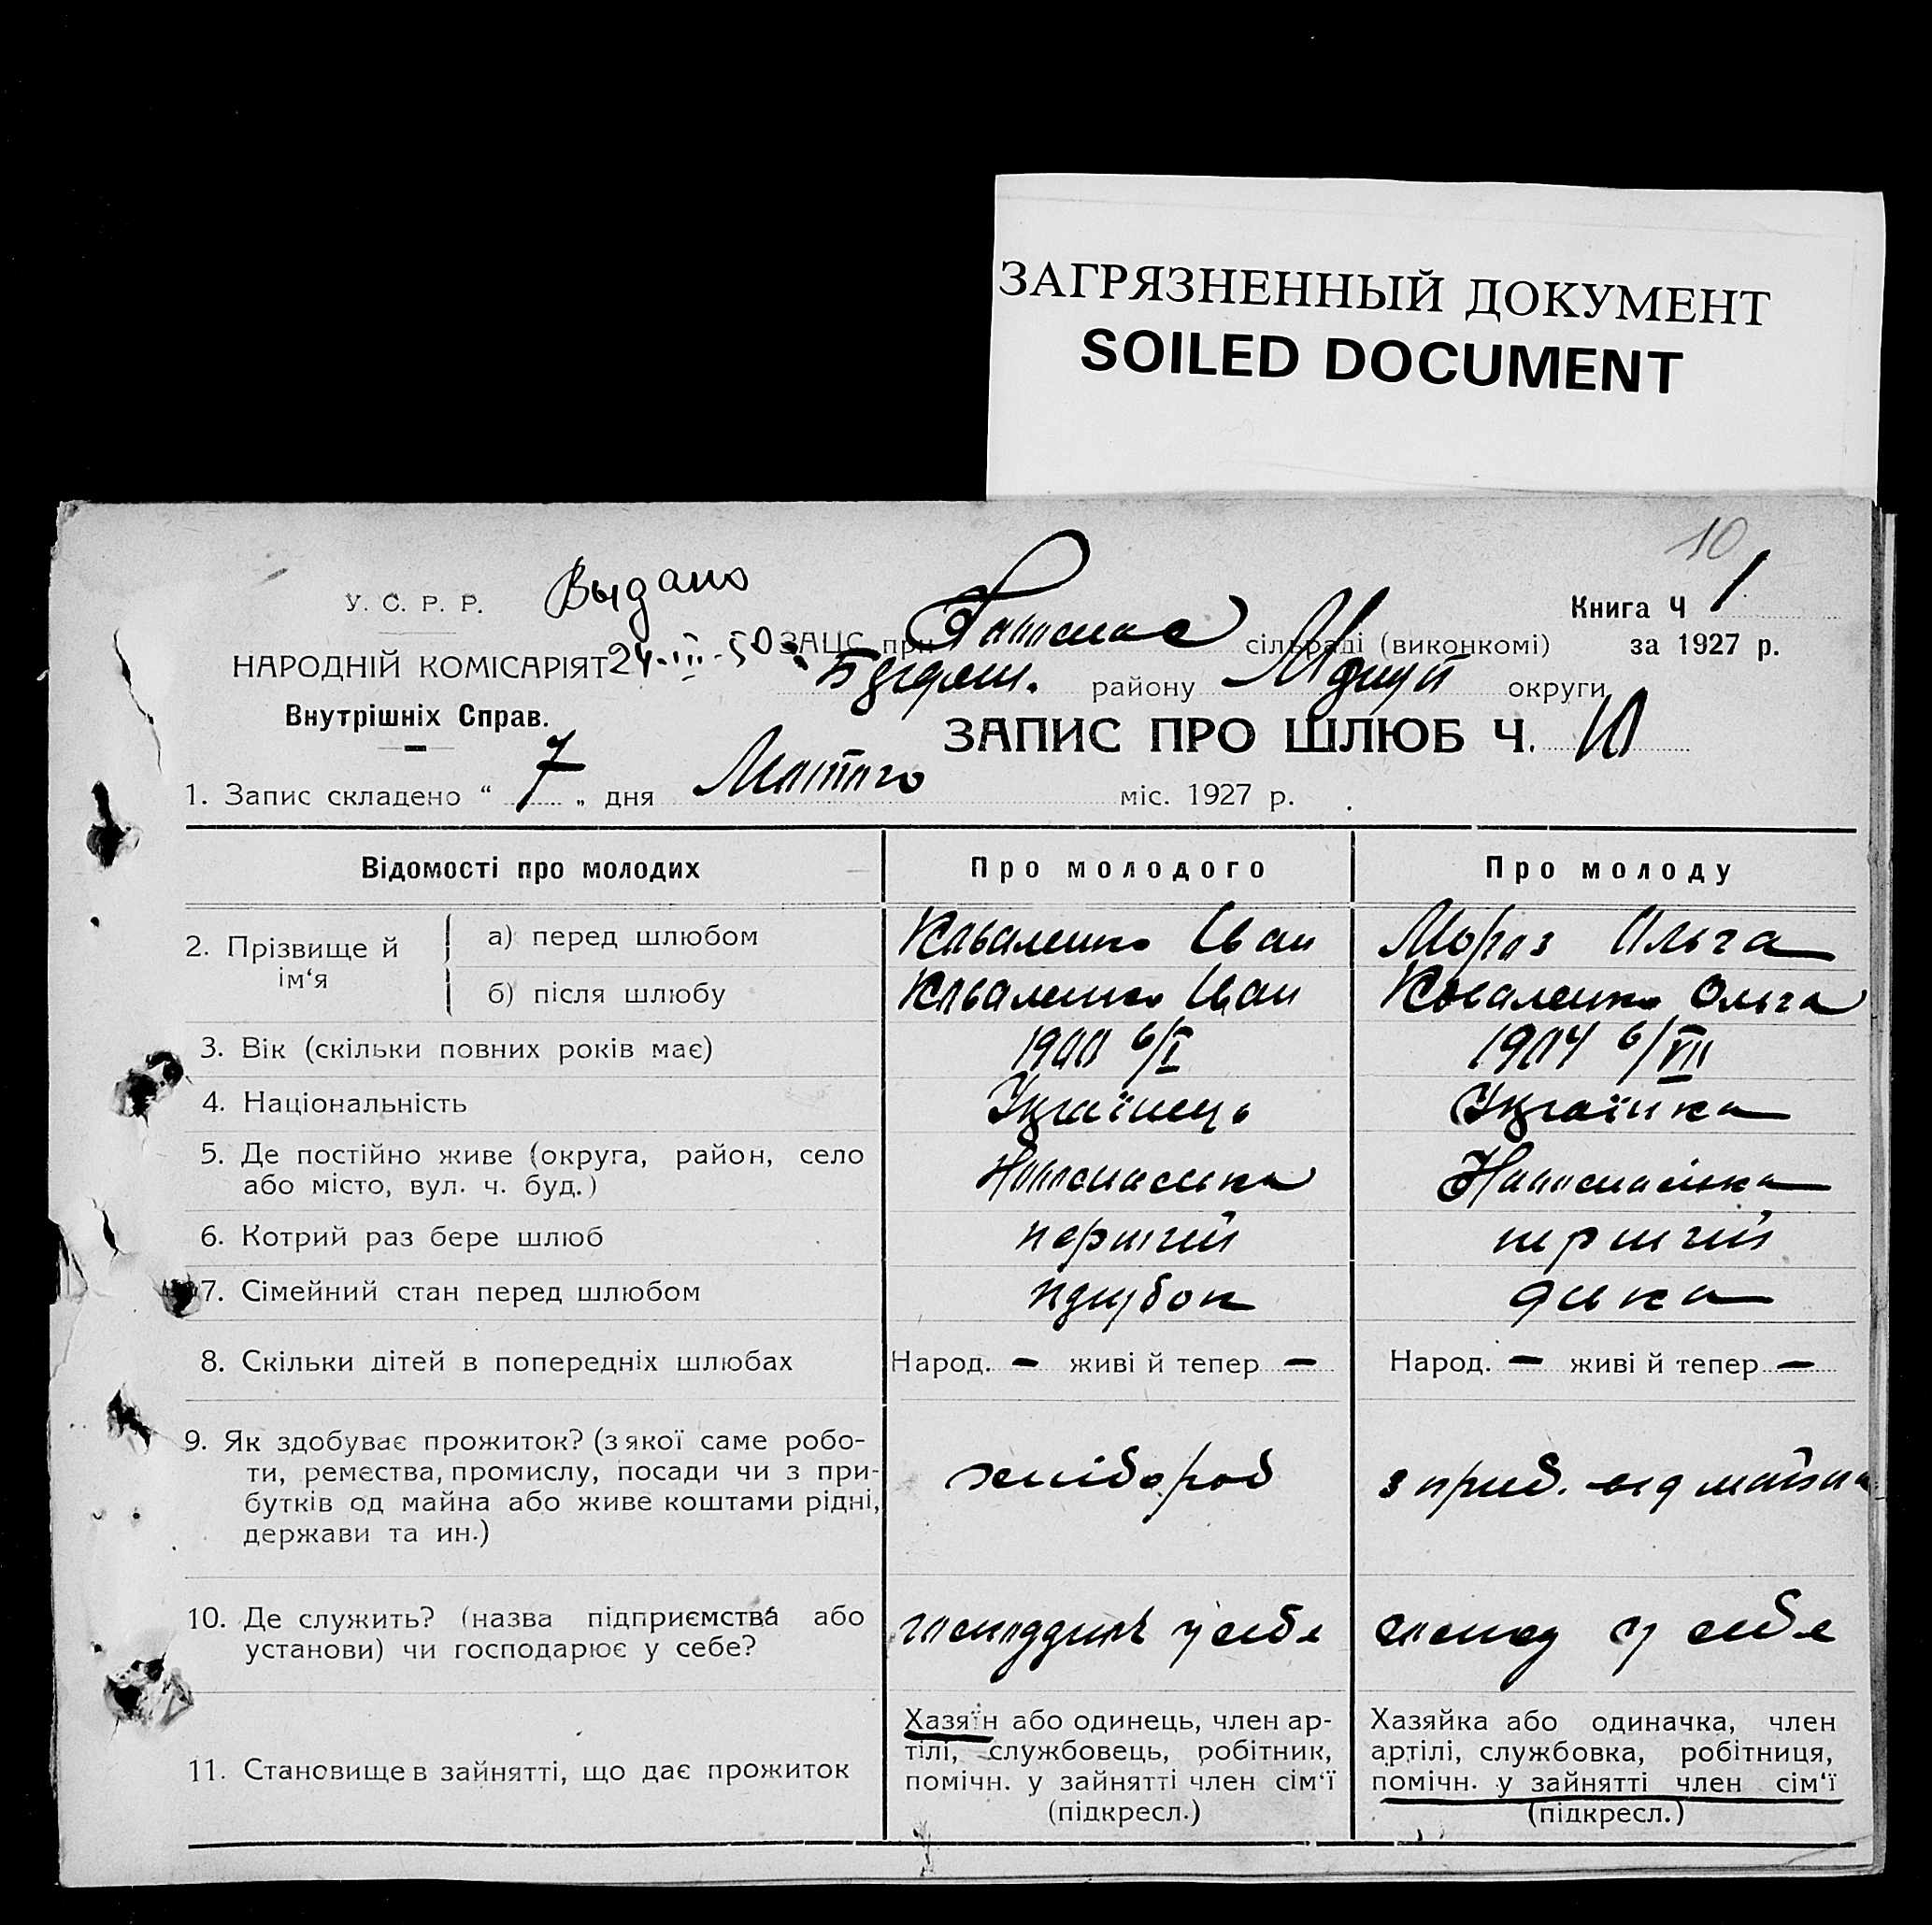 ЗАГРЯЗНЕННЫЙ ДОКУМЕНТ
SOILED DOCUMENT
10
У. С. Р. Р.
Выдано
Книга Ч 1
НАРОДНІЙ КОМІСАРІЯТ
24-III-50
ЗАЦС при сільраді (виконкомі)
за 1927 р.
району округи
Внутрішніх Справ.
ЗАПИС ПРО ШЛЮБ Ч. 10
1. Запис складено “ 7 „ дня Лютого міс. 1927 р.
Відомості про молодих
Про молодого
Про молоду
2. Прізвище й ім‘я
а) перед шлюбом
Коваленко Іван
Мороз Ольга
б) після шлюбу
Коваленко Іван
Коваленко Ольга
3. Вік (скільки повних років має)
1900 6/I
1904 6/VII
4. Національність
Українець
Українка
5. Де постійно живе (округа, район, село
або місто, вул. ч. буд.)
6. Котрий раз бере шлюб
перший
перший
7. Сімейний стан перед шлюбом
парубок
дівка
8. Скільки дітей в попередніх шлюбах
Народ. – живі й тепер –
Народ. – живі й тепер –
9. Як здобуває прожиток? (з якої саме робо-
ти, ремества, промислу, посади чи з при-
бутків од майна або живе коштами рідні,
держави та ин.)
хлібороб
з приб. від майна
10. Де служить? (назва підприємства або
установи) чи господарює у себе?
у себе
господ у себе
11. Становище в зайнятті, що дає прожиток
Хазяїн або одинець, член ар-
тілі, службовець, робітник,
помічн. у зайнятті член сім‘ї
(підкресл.)
Хазяйка або одиначка, член
артілі, службовка, робітниця,
помічн. у зайнятті член сім‘ї
(підкресл.)